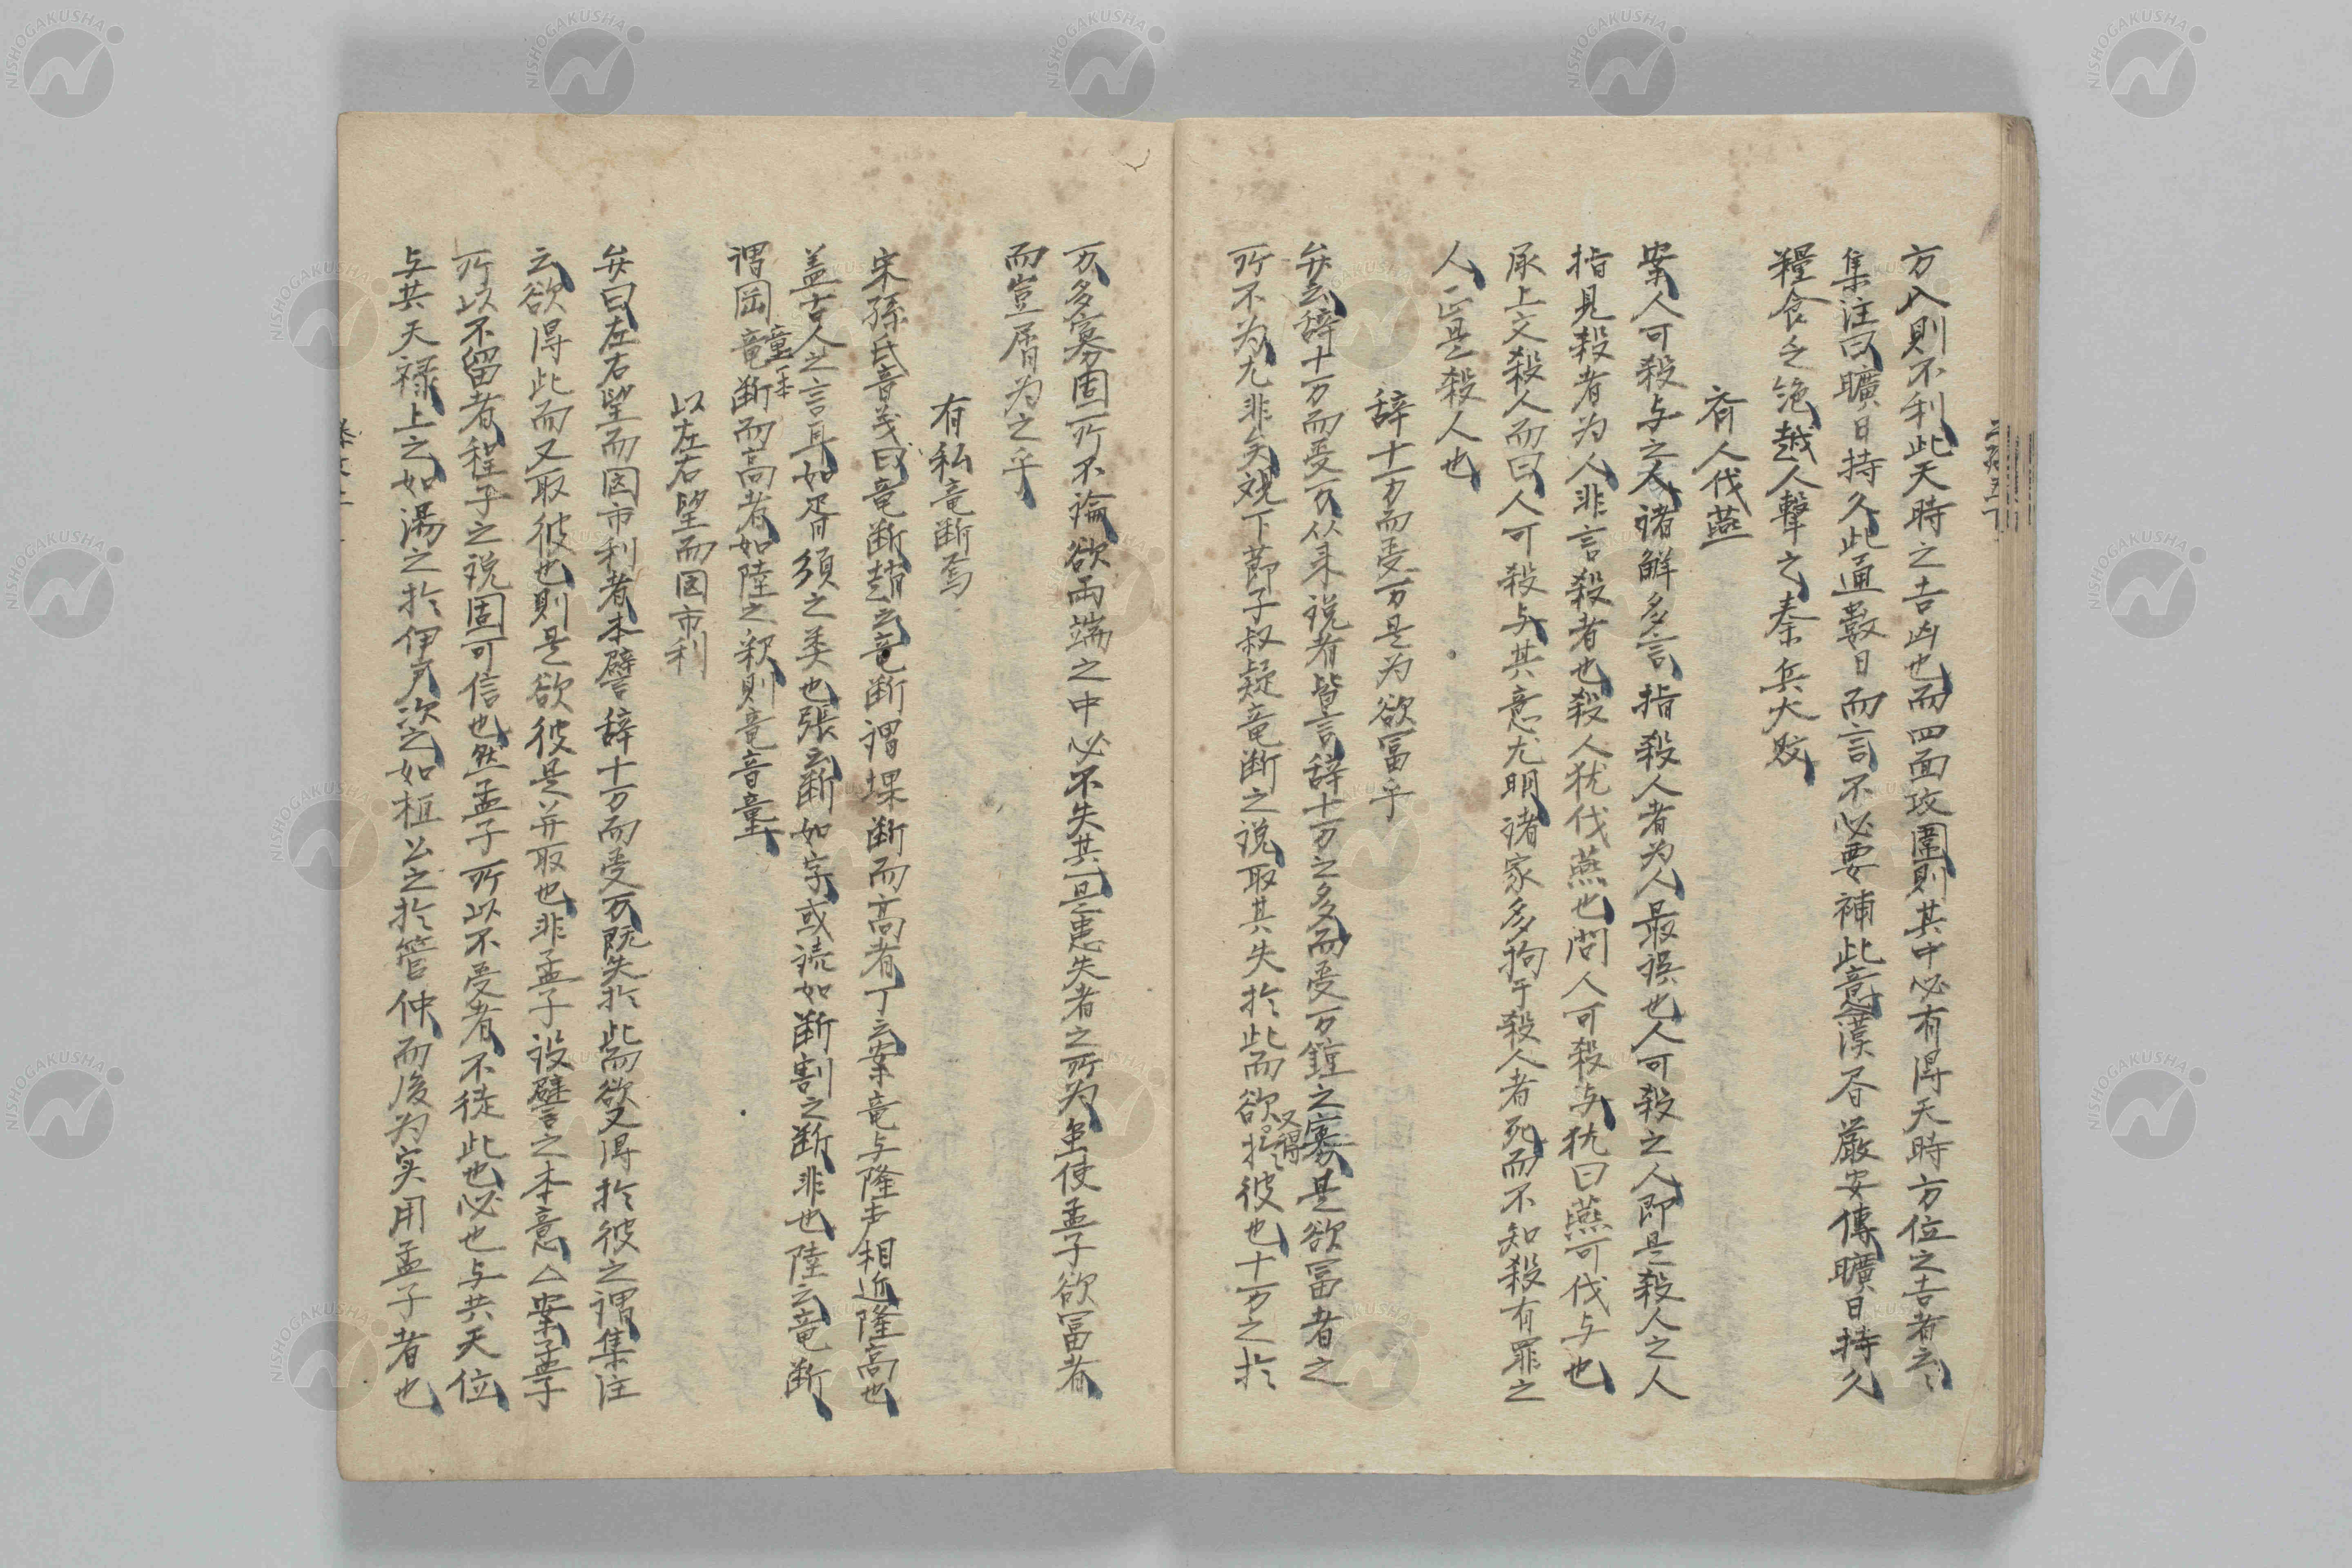 方入則不利此天時之吉凶也而四面攻圍則其中必有得天時方位之吉者云々
集注曰曠日持久此通數日而言不必要補此意漢書嚴安傳曠日持久
糧食乏絶越人擊之秦兵大敗
齊人伐燕
案人可殺与之人諸解多言指殺人者为人最误也人可殺之人即是殺人之人
指見殺者为人非言殺者也殺人犹伐燕也問人可殺与犹曰燕可伐与也
承上文殺人而曰人可殺与其意尤明諸家多拘于殺人者死而不知殺有罪之
人亦是殺人也
辞十万而受万是为欲冨乎
弁云辞十万而受万从来説者皆言辞十万之多而受万鍾之寡是欲冨者之
所不为尤非矣观下莭子叔疑竜断之説取其失於此而欲又得於彼也十万之於
万多寡固所不論欲両端之中必不失其一是患失者之所为虽使孟子欲冨者
而豈屑为之乎
有私竜断焉
宋孫氏音义曰竜断趙云竜断謂堁断而高者丁云案竜与隆声相近隆高也
盖古人之言耳如胥須之类也張云断如字或読如断割之断非也陸云竜断
謂岡竜断而高者如陸之釈則竜音童
童一本
以左右望而罔市利
弁曰左右望而罔市利者本譬辞十万而受万既失於此而欲又得於彼之謂集注
云欲得此而又取彼也則是欲彼是并取也非孟子設譬之本意△案孟子
所以不留者程子之説固可信也然孟子所以不受者不徒此也必也与共天位
与共天禄上之如湯之於伊尹次之如桓公之於管仲而後为实用孟子者也